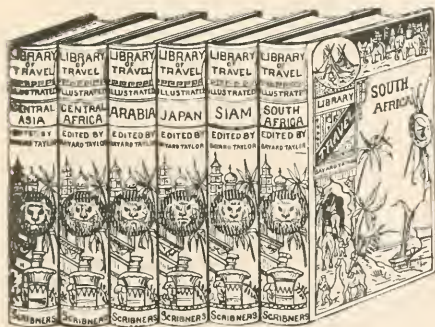 LIBRARY
OF
TRAVEL
ILLUSTRATED
CENTRAL
ASIA
EDITED BY
BAYARD TAYLOR
SCRIBNERS
LIBRARY
OF
TRAVEL
ILLUSTRATED
CENTRAL
AFRICA
EDITED BY
BAYARD TAYLOR
SCRIBNERS
LIBRARY
OF
TRAVEL
ILLUSTRATED
ARABIA
EDITED BY
BAYARD TAYLOR
SCRIBNERS
LIBRARY
OF
TRAVEL
ILLUSTRATED
JAPAN
EDITED BY
BAYARD TAYLOR
SCRIBNERS
LIBRARY
OF
TRAVEL
ILLUSTRATED
SIAM
EDITED BY
BAYARD TAYLOR
SCRIBNERS
LIBRARY
OF
TRAVEL
ILLUSTRATED
SOUTH
AFRICA
EDITED BY
BAYARD TAYLOR
SCRIBNERS
LIBRARY
TRAVEL
SOUTH
AFRICA